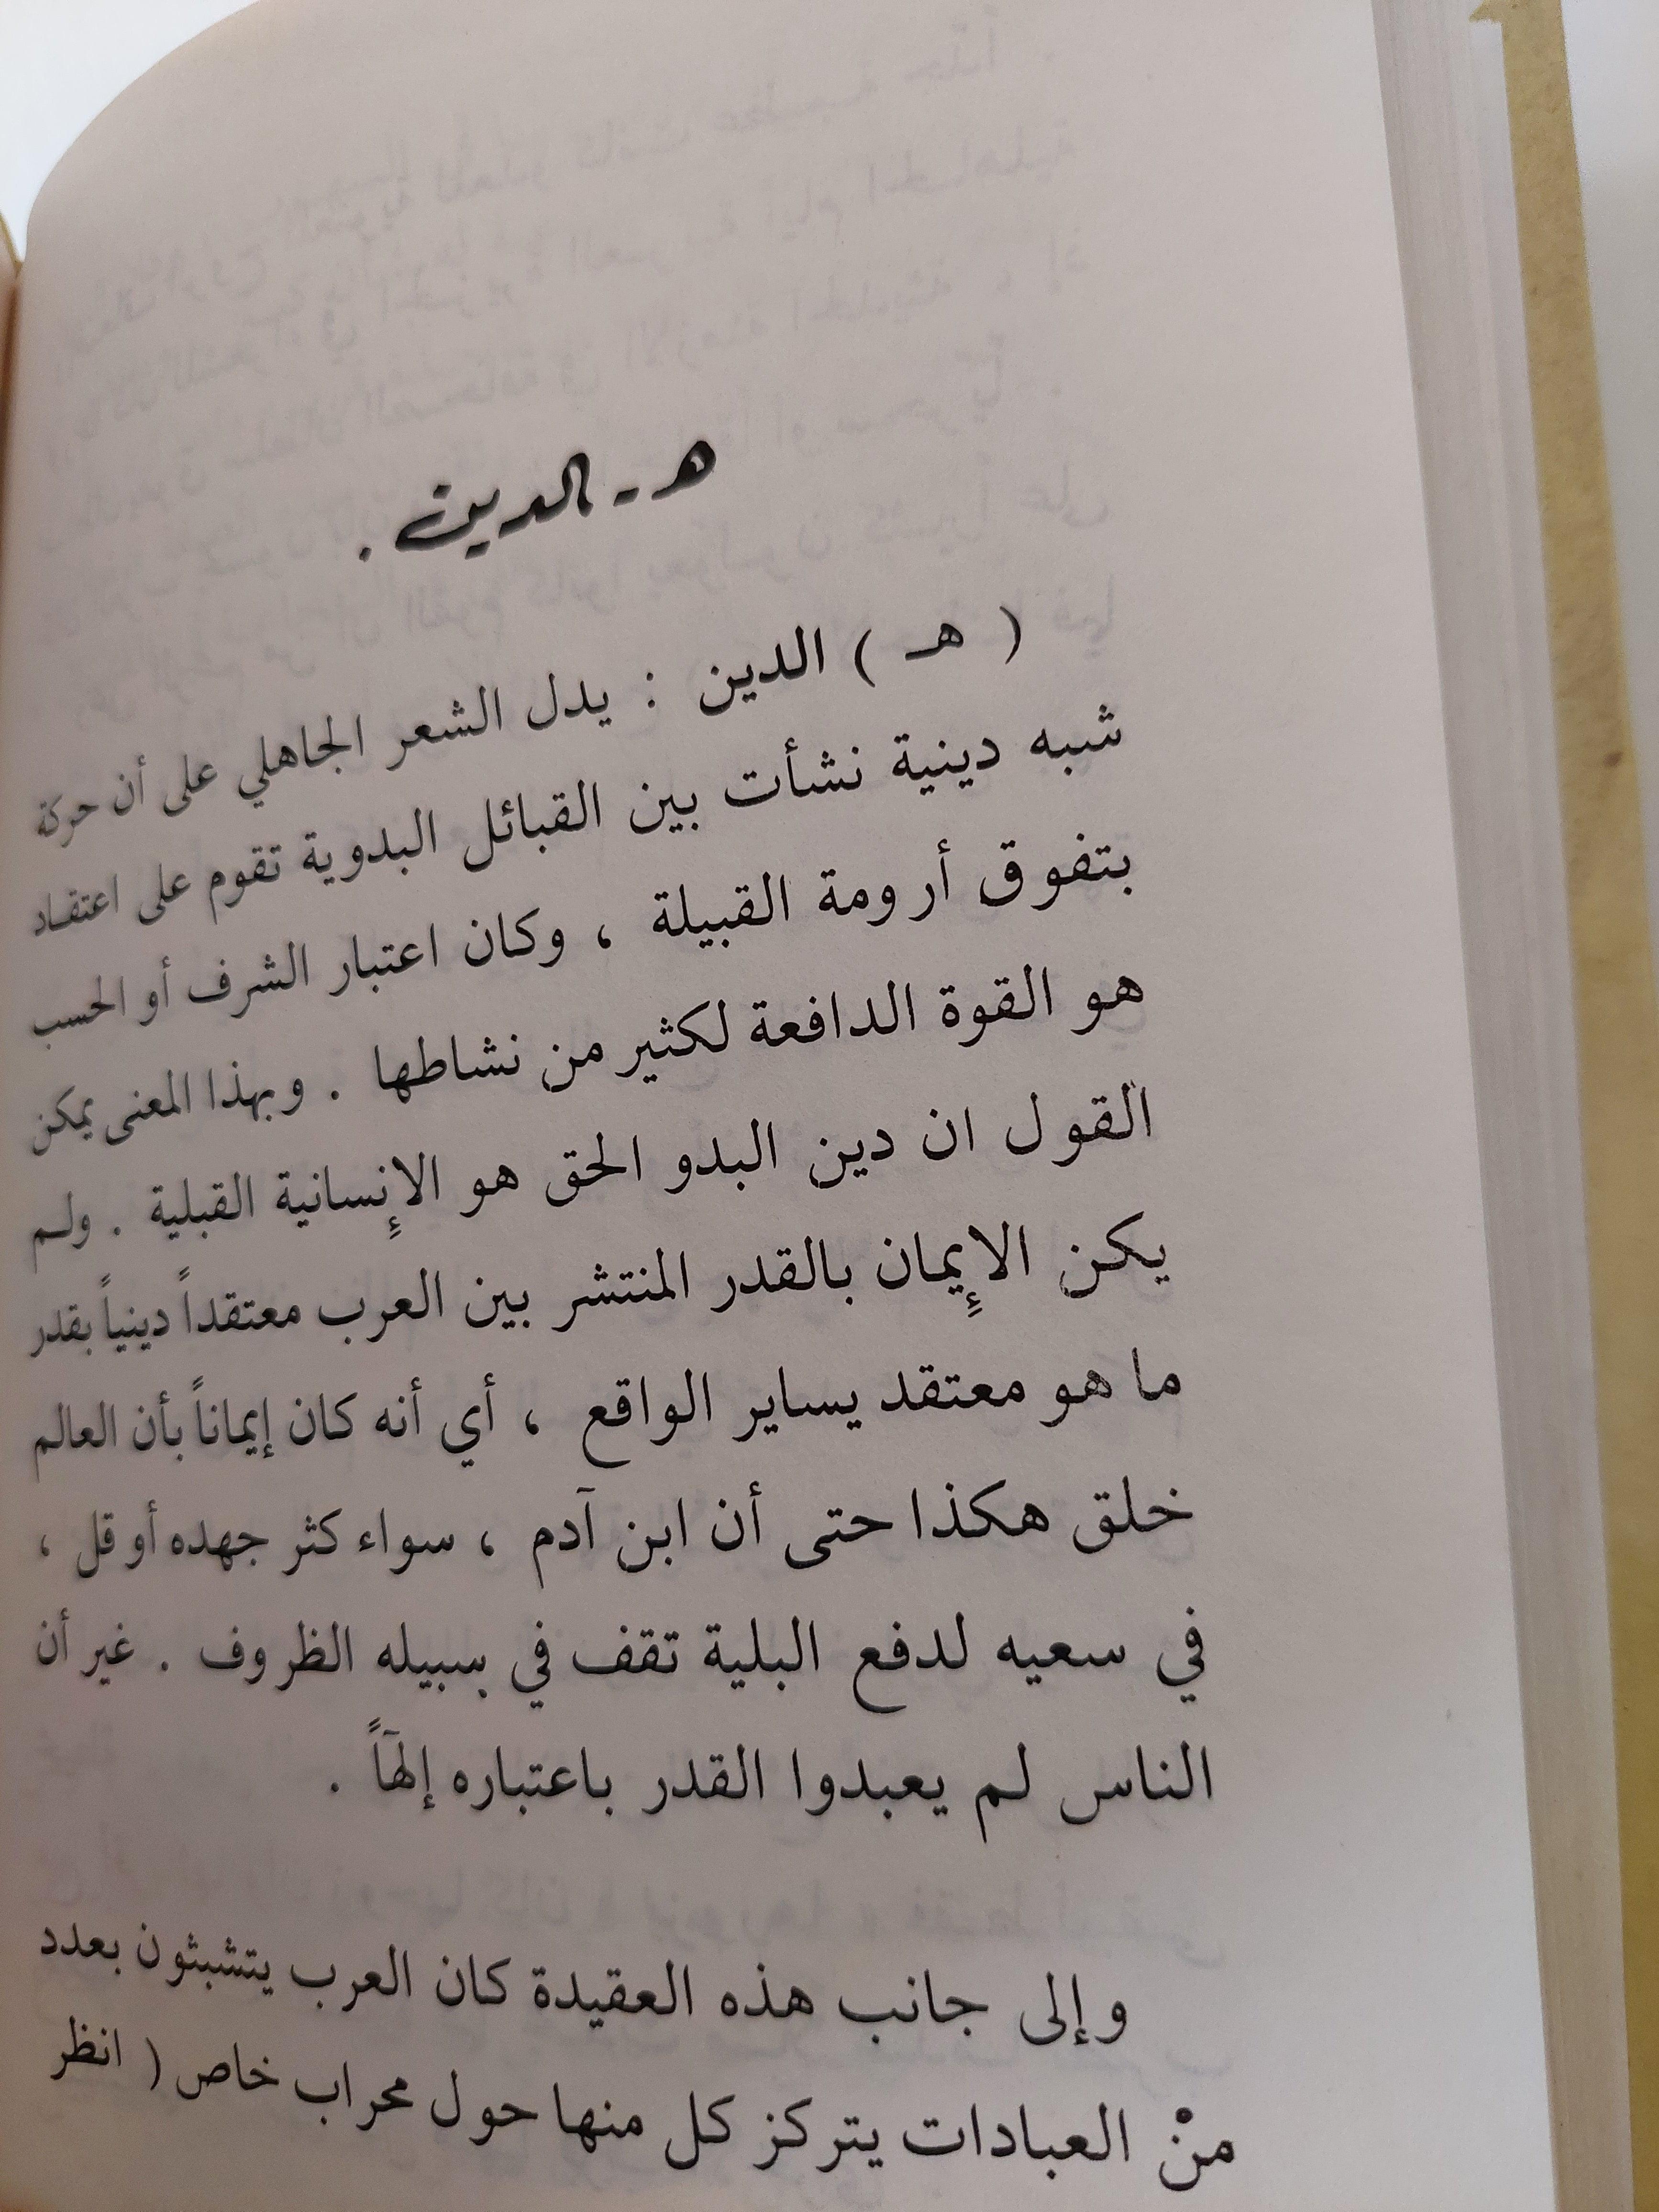 هـ - الدين .
( هـ ) الدين : يدل الشعر الجاهلي على أن حركة
شبه دينية نشأت بين القبائل البدوية تقوم على اعتقاد
بتفوق أرومة القبيلة ، وكان اعتبار الشرف أو الحسب
هو القوة الدافعة لكثير من نشاطها . وبهذا المعنى يمكن
القول ان دين البدو الحق هو الإنسانية القبلية . ولم
يكن الإيمان بالقدر المنتشر بين العرب معتقداً دينياً بقدر
ما هو معتقد يساير الواقع ، أي أنه كان إيماناً بأن العالم
خلق هكذا حتى أن ابن آدم ، سواء كثر جهده أو قل ،
في سعيه لدفع البلية تقف في سبيله الظروف . غير أن
الناس لم يعبدوا القدر باعتباره إلهاً .
وإلى جانب هذه العقيدة كان العرب يتشبثون بعدد
منْ العبادات يتركز كل منها حول محراب خاص ( انظر